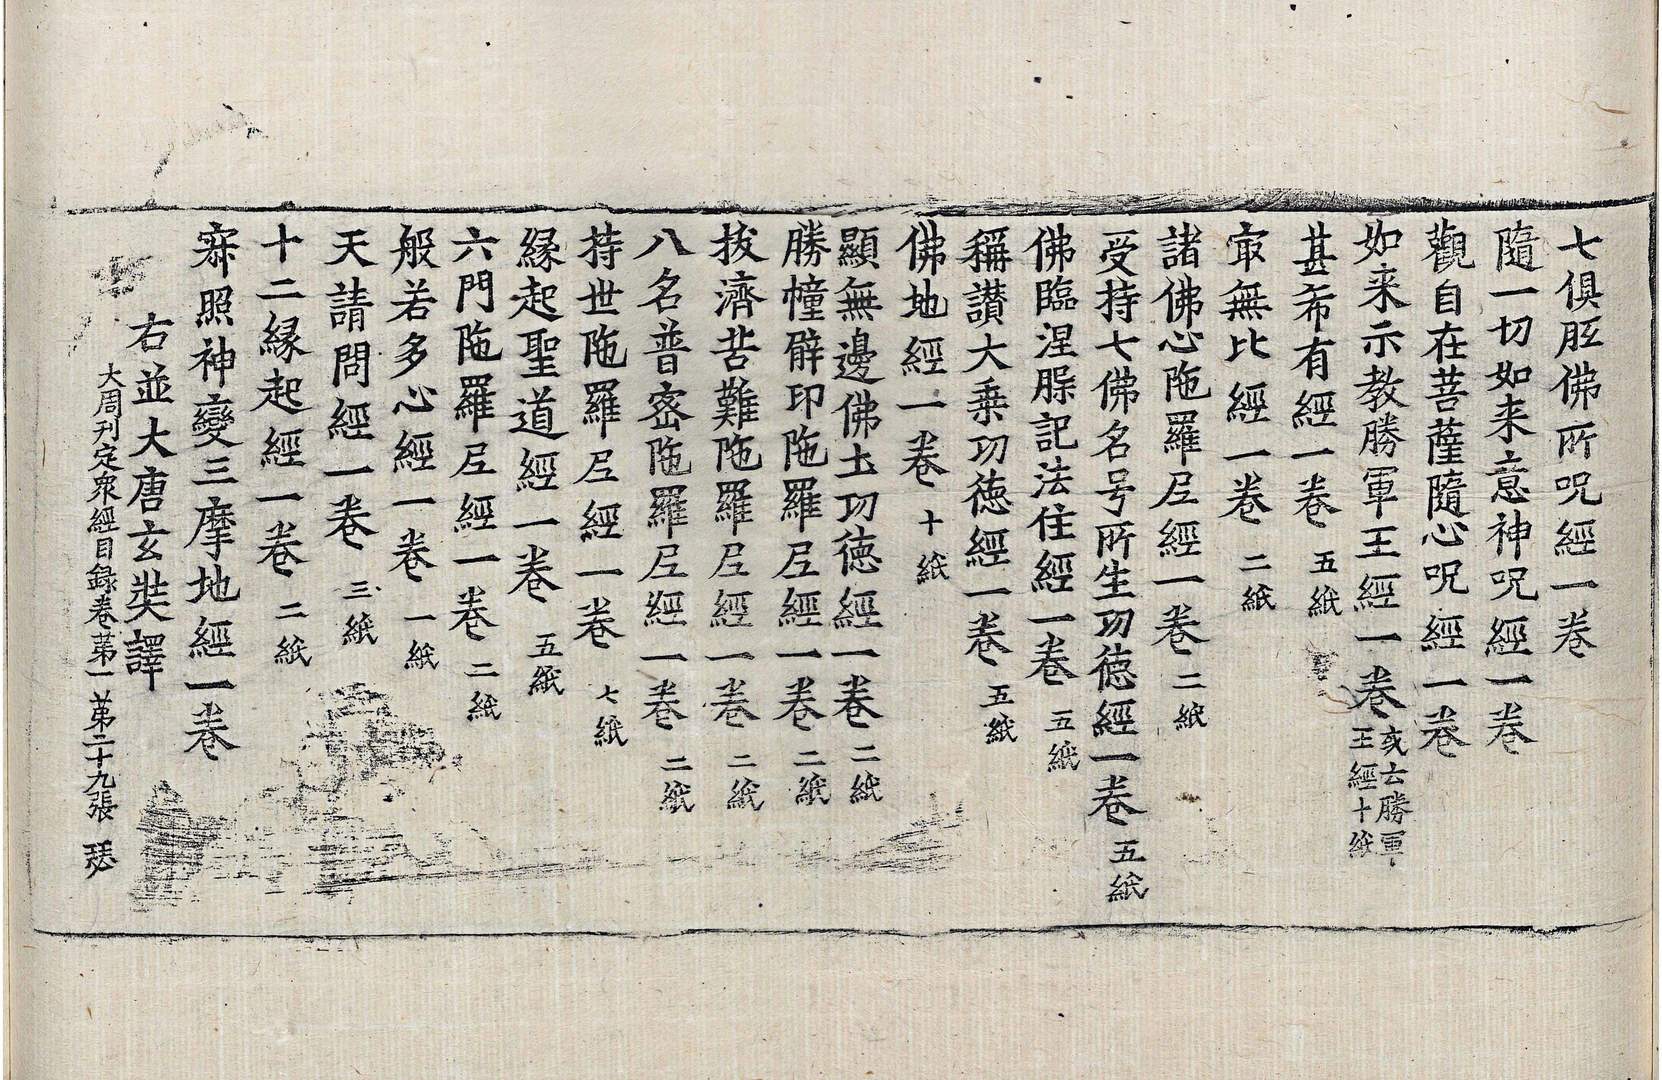 七俱胝佛所呪經一卷
隨一切如来意神呪經一卷
觀自在菩薩隨心呪經一卷
如来示教勝軍王經一卷 亥云勝軍王經十紙
甚希有經一卷 五紙
冣無比經一卷 二紙
諸佛心陁羅尼經一卷 二紙
受持七佛名号所生功徳經一卷 五紙
佛臨涅槃記法住經一卷 五紙
稱讃大乗功徳經一卷 五紙
佛地經一卷 十紙
顯無邊佛土功徳經一卷 二紙
勝幢臂印陁羅尼經一卷 二紙
拔濟苦難陁羅尼經一卷 二紙
八名普密陁羅尼經一卷 二紙
持世陁羅尼經一卷 七紙
縁起聖道經一卷 五紙
六門陁羅尼經一卷 二紙
般若多心經一卷 一紙
天請問經一卷 三紙
十二縁起經一卷 二紙
寂照神變三摩地經一卷
右並大唐玄奘譯
大周刊定衆經目録卷苐一 苐二十九張 瑟